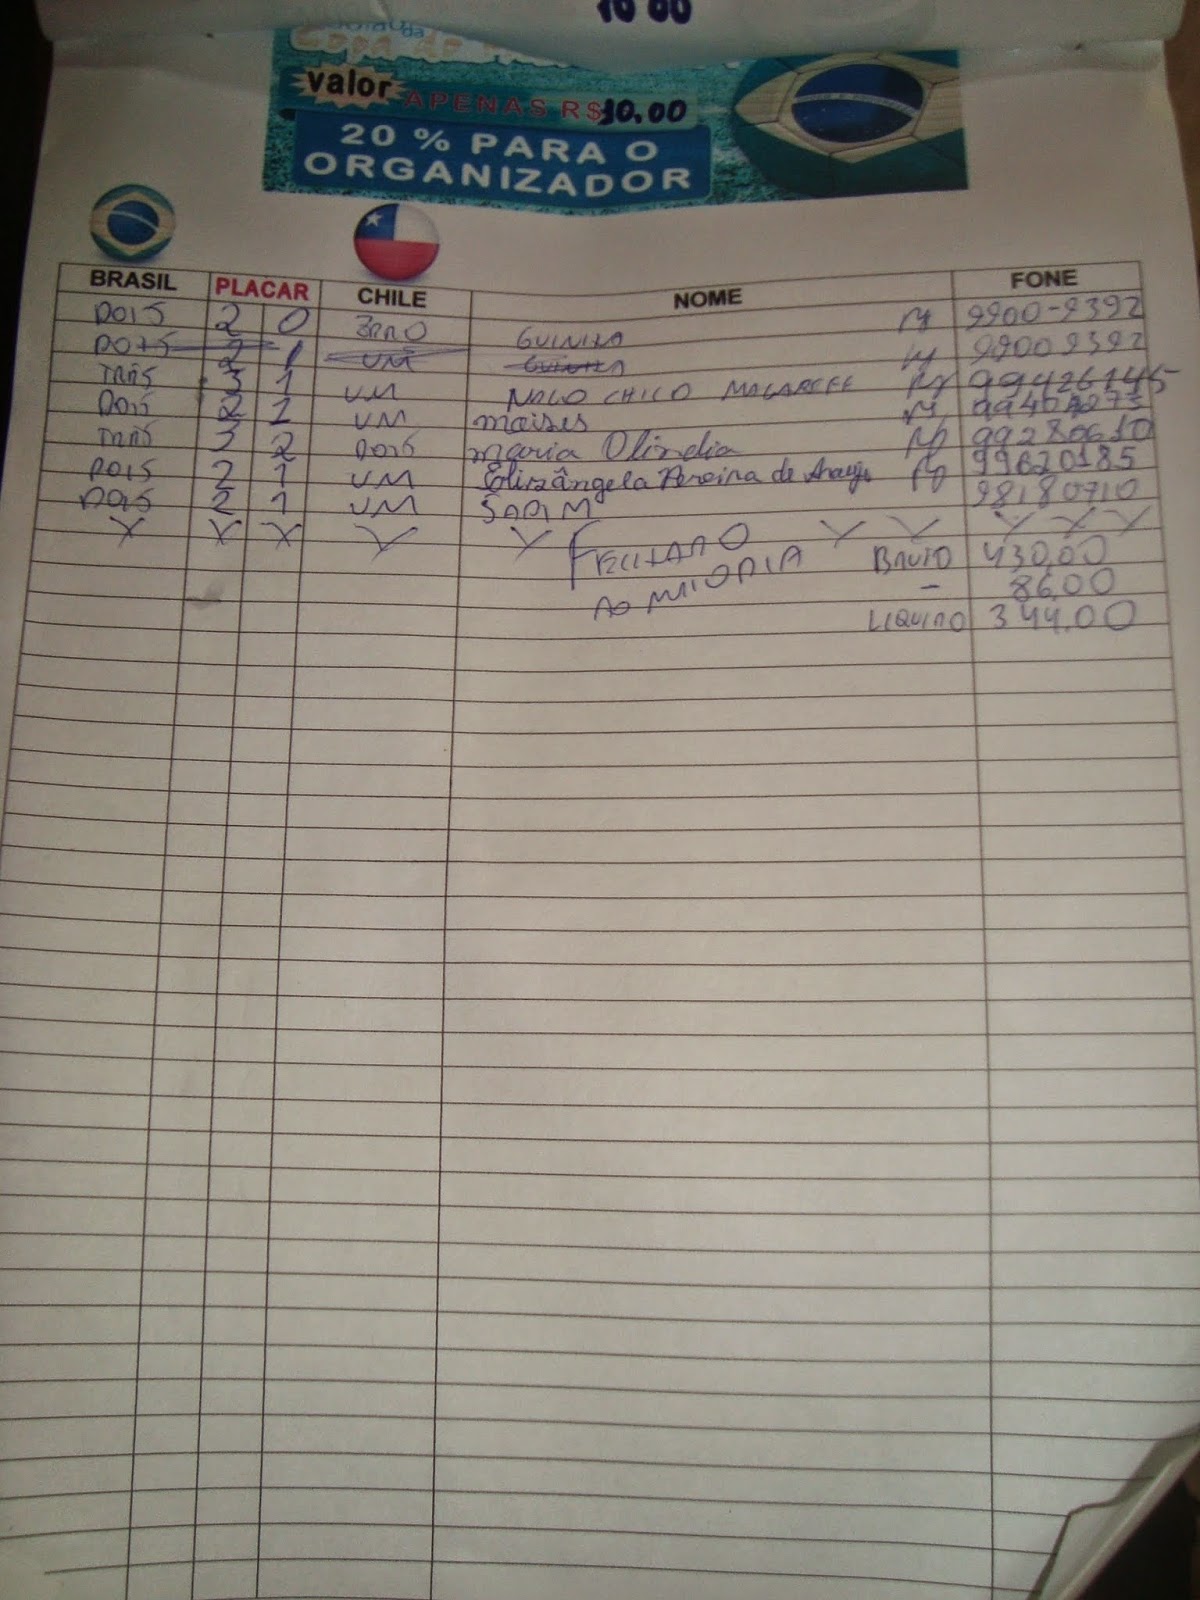 10 00
Copa do
valor APENAS R$10,00
20 % PARA O
ORGANIZADOR
BRASIL PLACAR CHILE NOME FONE
DOIS 2 0 ZERO GUINIZA 9900-9392
DOIS 2 1 UM 99009392
TRÊS 3 1 UM CHICO 994261745
DOIS 2 1 UM moises
TRÊS 3 2 DOIS maria Olindia 99280610
DOIS 2 1 UM Elizângela Pereira de Araujo 99620185
DOIS 2 1 UM 98180710
X X X Y Y FECHADO Y Y Y X Y
AO MEIO DIA BRUTO 430,00
- 86,00
LIQUIDO 344,00